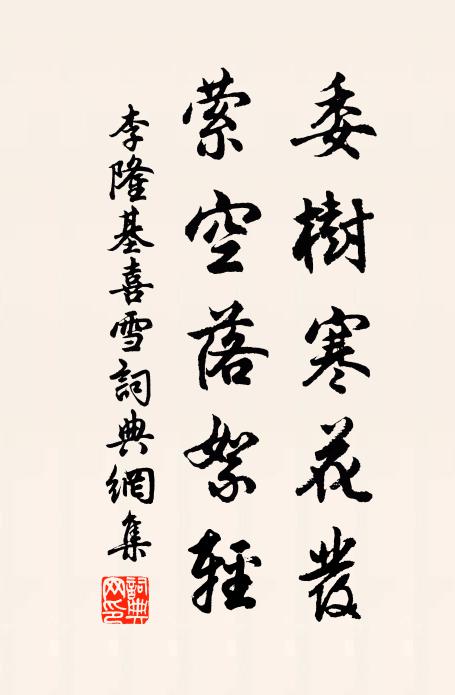 委樹寒花發
縈空落絮輕
李隆基喜雪詞典網集
詞典網印